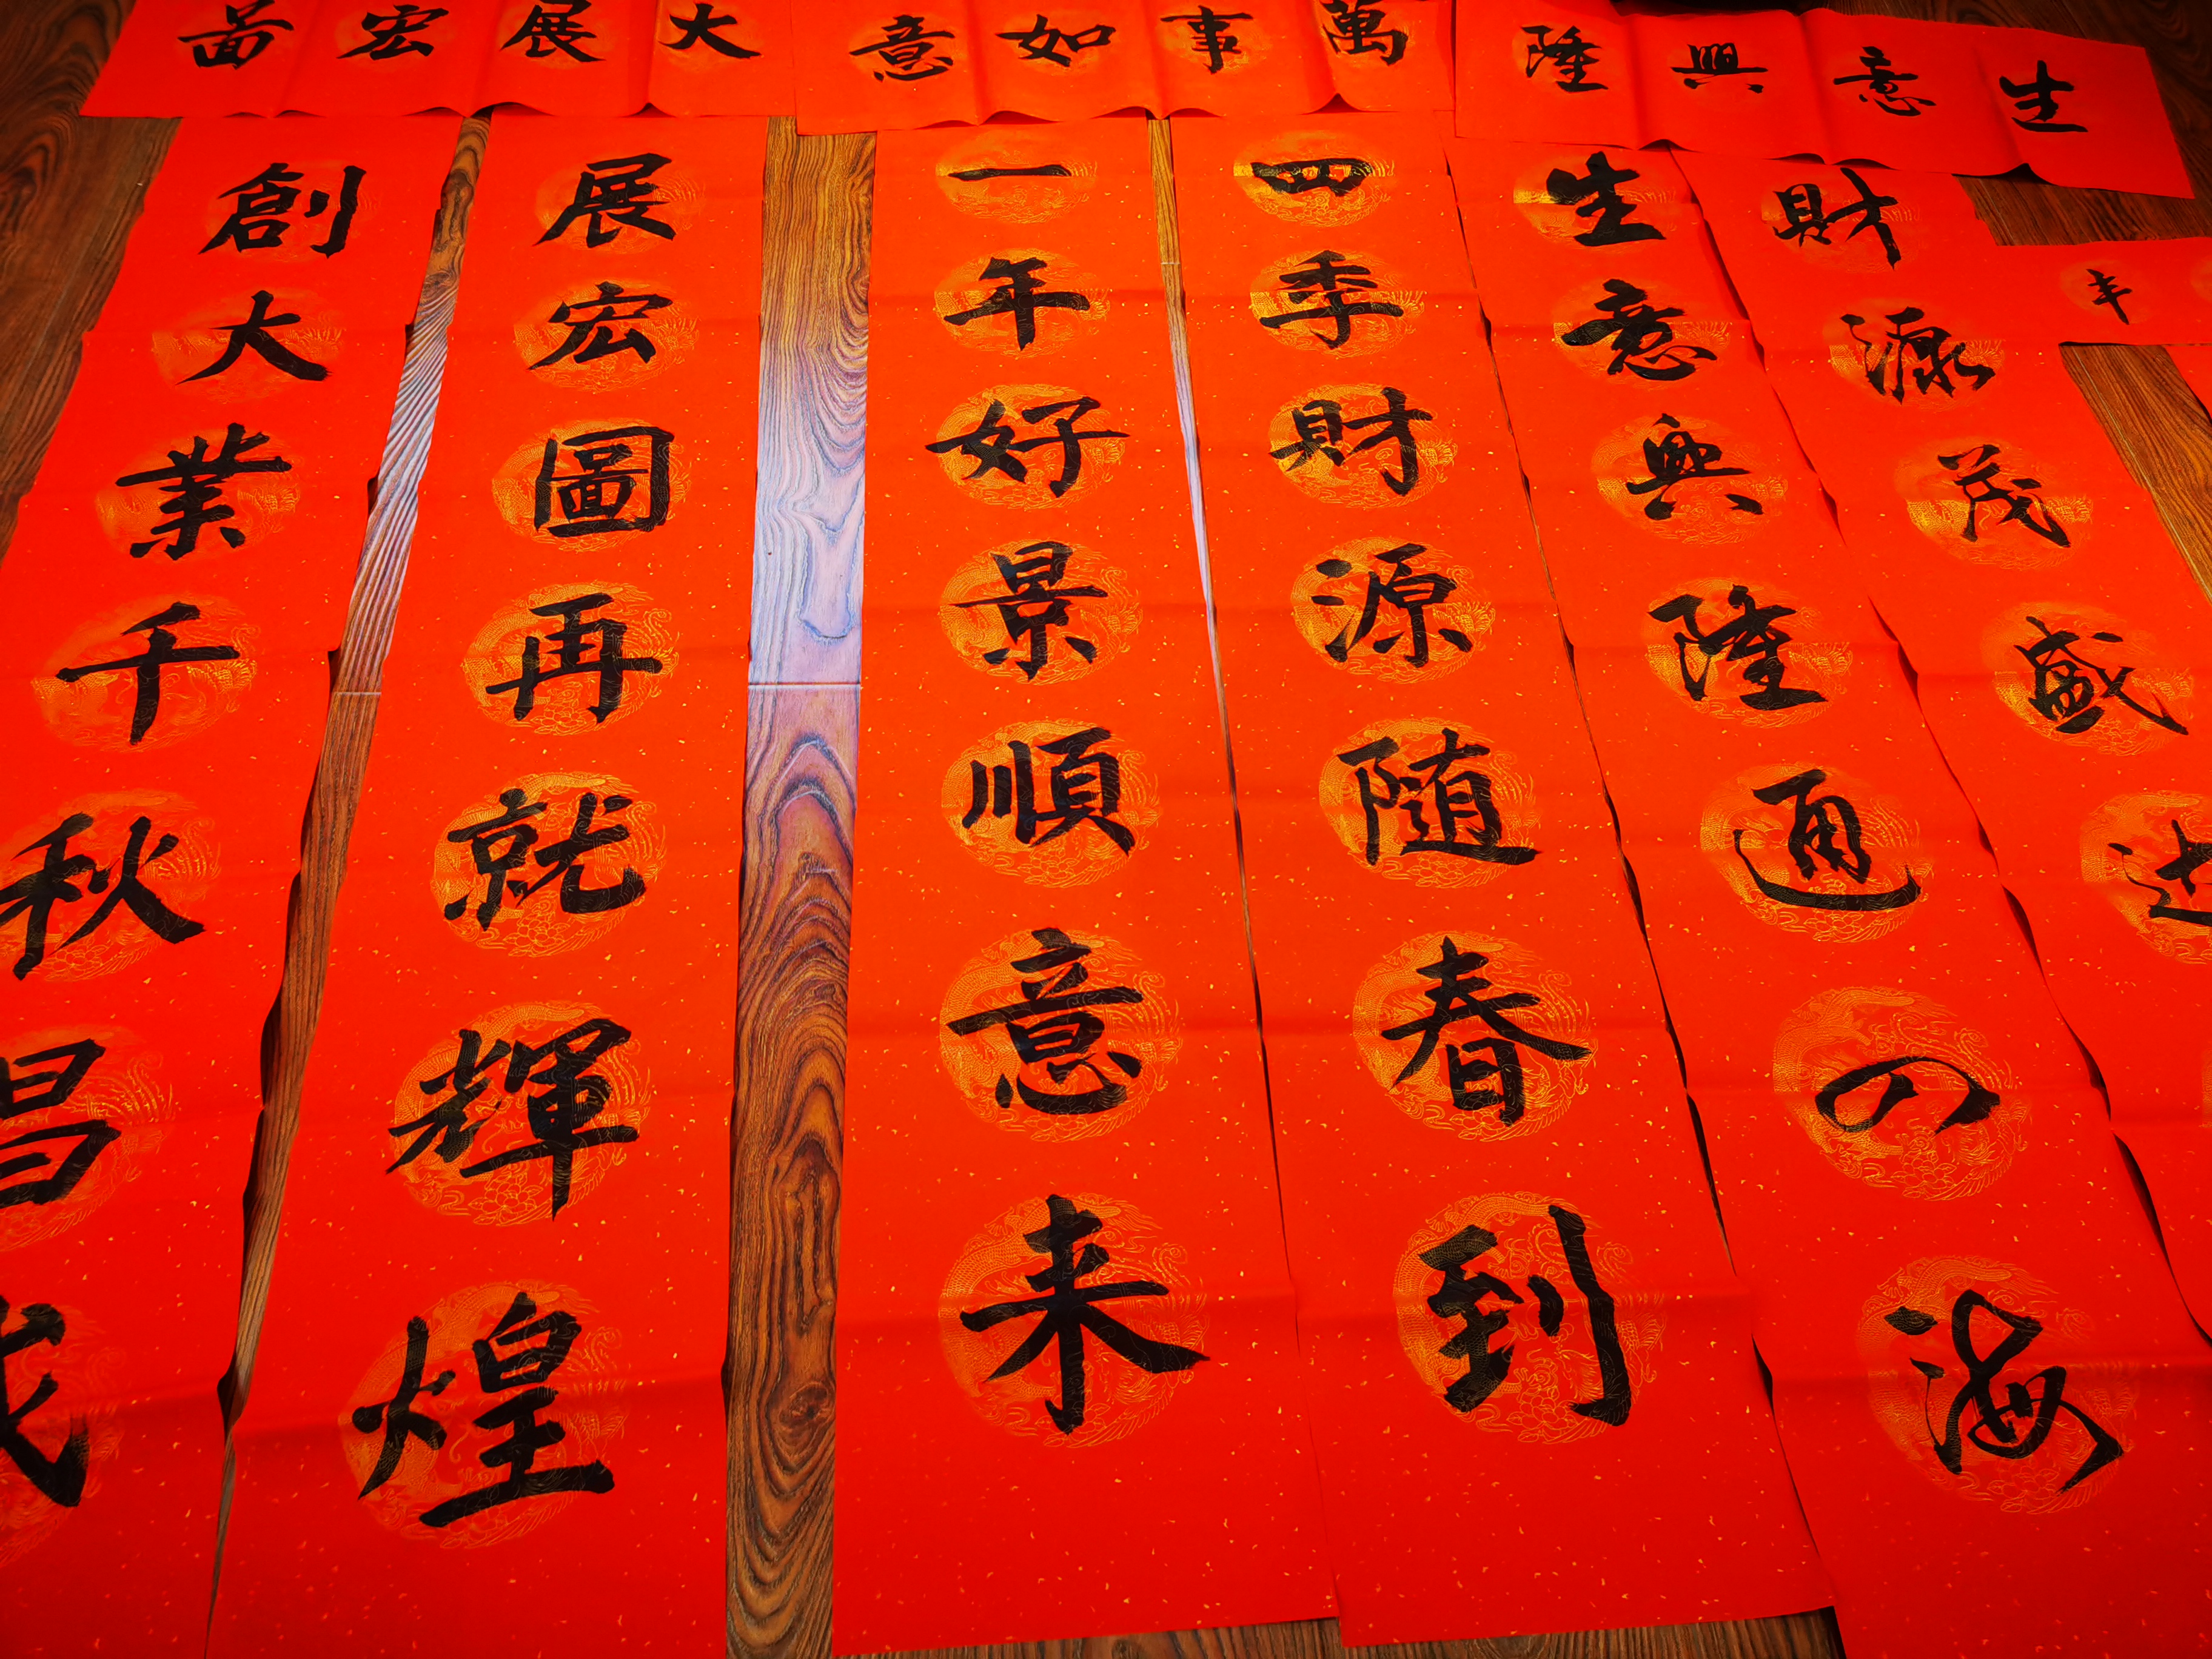 生意興隆
萬事如意
大展宏啚
丰
財源茂盛
生意興隆通四海
四季財源随春到
一年好景順意来
展宏圖再就輝煌
創大業千秋昌